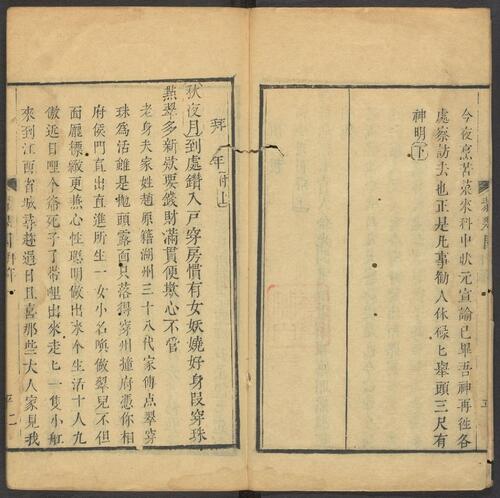 今夜烹苦菜來科中狀元宣諭已畢吾神再往各
處察訪去也正是凡事勸人休碌匕舉頭三尺有
神明下
拜年 付上
狀夜月到處鑽入戸穿房慣有女妖嬈好身段穿珠
燕翠多新欵要錢財滿貫便欺心不管
老身夫家姓趙原籍湖州三十八代家傳点翠穿
珠爲活雖是抛頭露面只落得穿州撞府憑你相
府侯門直出直進所生一女小名喚做翠兒不但
面龐標緻更𠔥心性聰明做出來个生活十人九
傲近日哩个爺死子了帶哩出來走匕一隻小舡
來到江西省城尋趂過日且喜那些大人家見我